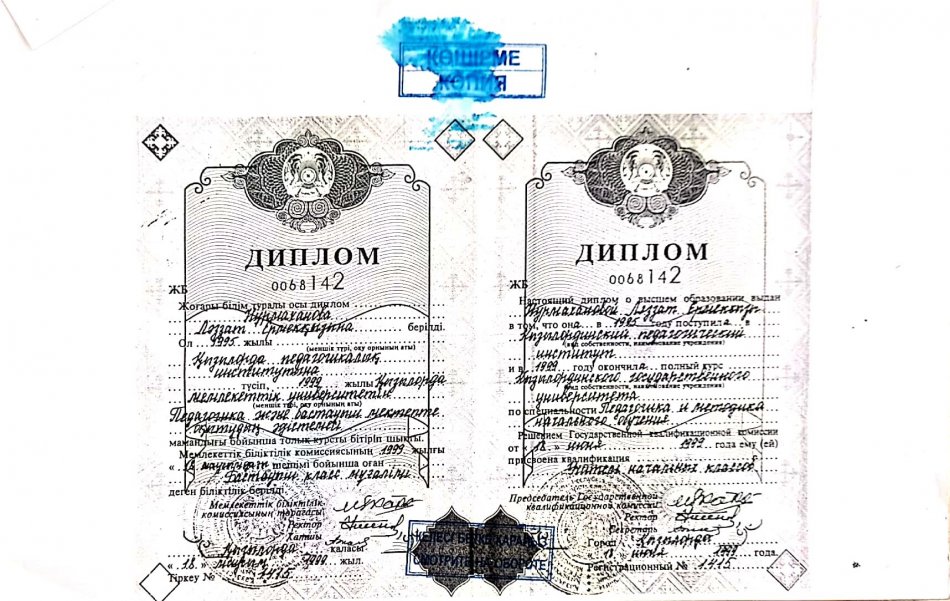 КӨШІРМЕ
КОПИЯ
ДИПЛОМ
ЖБ 0068142
Жоғары білім туралы осы диплом
Нурмаханова
Ләззат берілді.
Ол 1995 жылы
(меншік түрі, оқу орнының аты)
Қызылорда педагогикалық
институтына
түсіп, 1999 жылы Қызылорда
мемлекеттік университетін
(меншік түрі, оқу орнының аты)
Педагогика және бастауыш мектепте
оқытудың әдістемесі
мамандығы бойынша толық курсты бітіріп шықты.
Мемлекеттік біліктілік комиссиясының 1999 жылғы
« 18 » шешімі бойынша оған
Бастауыш класс мұғалімі
деген біліктілік берілді.
Мемлекеттік біліктілік
комиссиясының төрағасы
Ректор
Хатшы
Қызылорда қаласы
« 18 » 1999 жыл.
Тіркеу № 1415
ДИПЛОМ
ЖБ 0068142
Настоящий диплом о высшем образовании выдан
Нурмахановой Ләззат
в том, что она в 1995 году поступила в
Кызылординский педагогический
(вид собственности, наименование учреждения)
институт
и в 1999 году окончила полный курс
Кызылординского государственного
(вид собственности, наименование учреждения)
университета
по специальности Педагогика и методика
начального обучения
Решением Государственной квалификационной комиссии
от « 18 » июня 1999 года ему (ей)
присвоена квалификация
Учитель начальных классов
Председатель Государственной
квалификационной комиссии
Ректор
Секретарь
Город Кызылорда
« 18 » июня 1999 года.
Регистрационный № 1415
КЕЛЕСІ БЕТКЕ ҚАРАҢЫЗ
СМОТРИТЕ НА ОБОРОТЕ